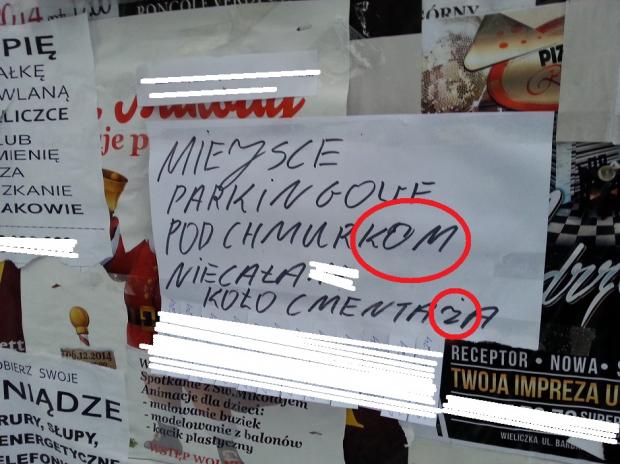 PIĘ
AŁKĘ
WLANĄ
LICZCE
LUB
MIENIĘ
ZA
SZKANIE
AKOWIE
je p
GÓRNY
PIZ
MIEJSCE
PARKINGOWE
POD CHMURKOM
NIECAŁA
KOŁO CMENTAŻA
06.12.2014
OBIERZ SWOJE
NIĄDZE
RURY, SŁUPY,
ENERGETYCZNE
TELEFONY
Spotkanie z Św. Mikołajem
Animacje dla dzieci:
- malowanie buziek
- modelowanie z balonów
- kącik plastyczny
WSTĘP WOL
RECEPTOR • NOWA • S
TWOJA IMPREZA U
SUPER
WIELICZKA UL. BARB